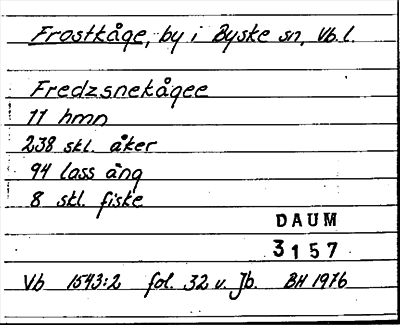 Frostkåge, by i Byske sn, Vb.l.
Fredzsnekågee
11 hmn
238 skl. åker
94 lass äng
8 skl. fiske
DAUM
3157
Vb 1543:2 fol. 32 v. Jb. BH 1976